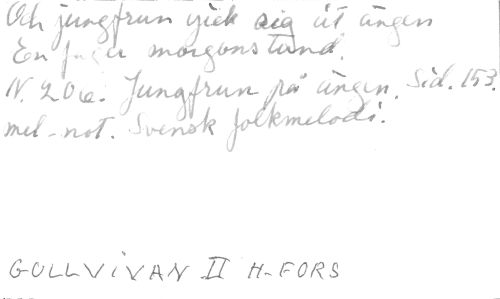 Och jungfrun gick sig åt ängen
En fager morgonstund.
N. 206. Jungfrun på ängen. Sid. 153.
mel-not. Svensk folkmelodi.
GULLVIVAN II H-FORS